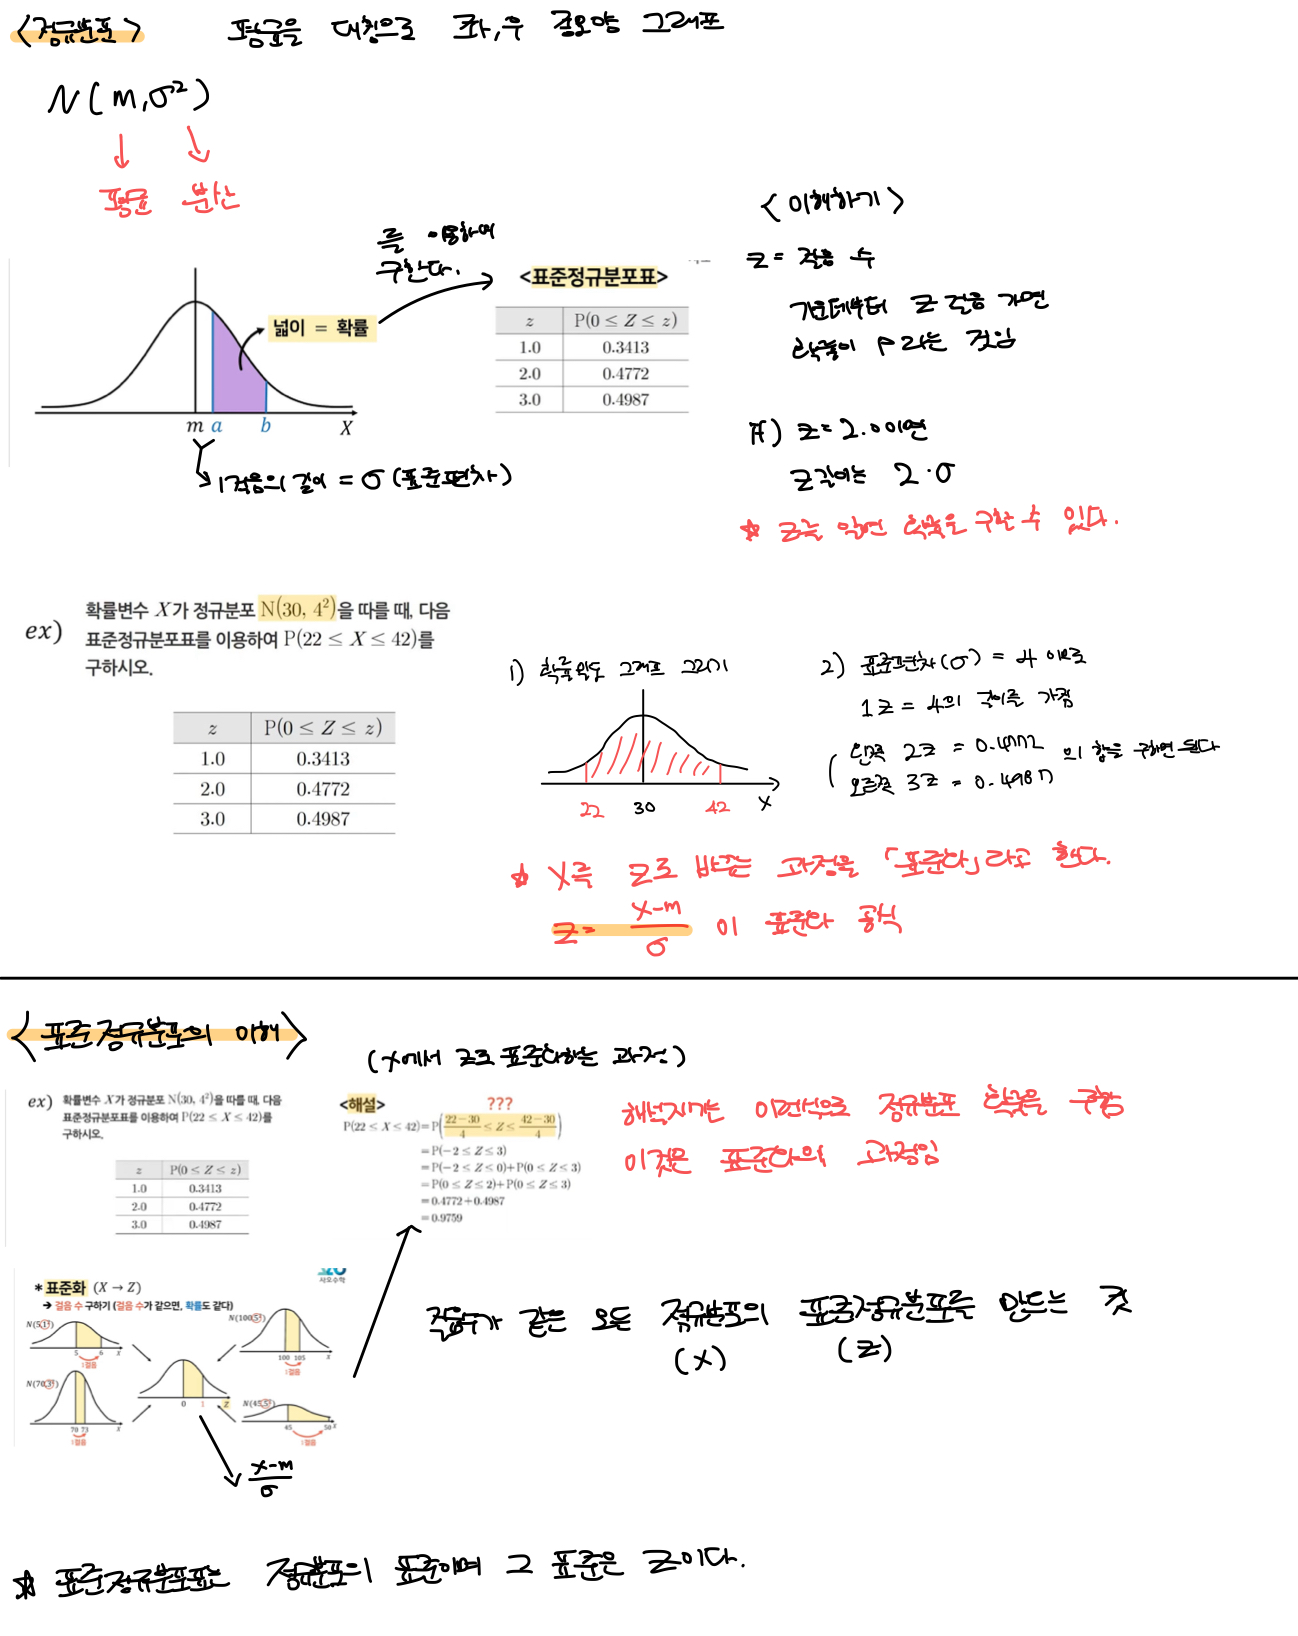 <정규분포> 평균을 대칭으로 좌,우 종모양 그래프
N(m,σ²)
평균 분산
를 이용하여
구한다.
넓이 = 확률
m a b X
1걸음의 길이 = σ (표준편차)
<표준정규분포표>
z P(0 ≤ Z ≤ z)
1.0 0.3413
2.0 0.4772
3.0 0.4987
<이해하기>
z = 걸음 수
가운데부터 z 걸음 가면
확률이 P 라는 것임
if) z = 2.0 이면
z 길이는 2·σ
☆ z를 알면 확률을 구할 수 있다.
ex) 확률변수 X가 정규분포 N(30, 4²)을 따를 때, 다음
표준정규분포표를 이용하여 P(22 ≤ X ≤ 42)를
구하시오.
z P(0 ≤ Z ≤ z)
1.0 0.3413
2.0 0.4772
3.0 0.4987
1) 확률밀도 그래프 그리기
22 30 42 X
2) 표준편차(σ) = 4 이므로
1z = 4의 길이를 가짐
왼쪽 2z = 0.4772 의 합을 구하면 된다
오른쪽 3z = 0.4987
☆ X를 z로 바꾸는 과정을 「표준화」라고 한다.
z = x-m/σ 이 표준화 공식
<표준정규분포의 이해>
(x에서 z로 표준화하는 과정)
ex) 확률변수 X가 정규분포 N(30, 4²)을 따를 때, 다음
표준정규분포표를 이용하여 P(22 ≤ X ≤ 42)를
구하시오.
z P(0 ≤ Z ≤ z)
1.0 0.3413
2.0 0.4772
3.0 0.4987
<해설> ???
P(22 ≤ X ≤ 42) = P(22-30/4 ≤ Z ≤ 42-30/4)
= P(-2 ≤ Z ≤ 3)
= P(-2 ≤ Z ≤ 0) + P(0 ≤ Z ≤ 3)
= P(0 ≤ Z ≤ 2) + P(0 ≤ Z ≤ 3)
= 0.4772 + 0.4987
= 0.9759
해설지는 이런식으로 정규분포 확률을 구함
이것은 표준화의 과정임
사오수학
* 표준화 (X → Z)
➔ 걸음 수 구하기 (걸음 수가 같으면, 확률도 같다)
N(5,1²)
5 6 X
1걸음
N(100,5²)
100 105 X
1걸음
N(70,3²)
70 73 X
1걸음
0 1 Z
N(45,5²)
45 50 X
1걸음
x-m/σ
걸음수가 같은 모든 정규분포의 표준정규분포를 만드는 것
(X) (Z)
☆ 표준정규분포표는 정규분포의 표준이며 그 표준은 Z이다.